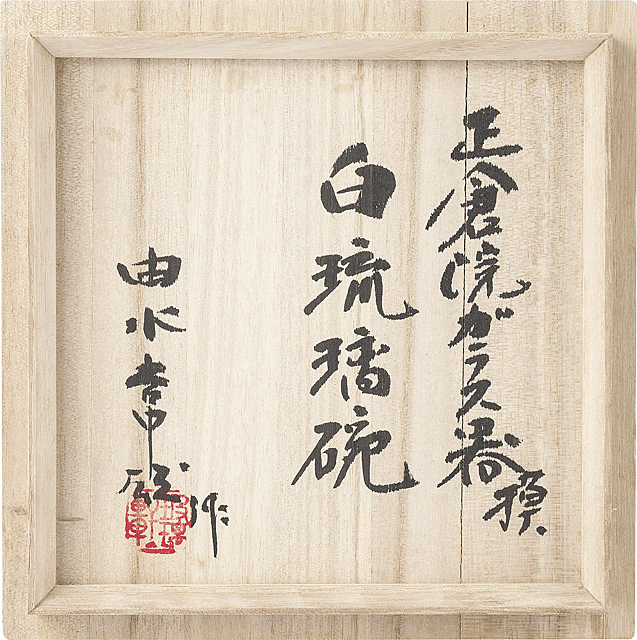 正倉院ガラス器模
白瑠璃碗
由水常雄作